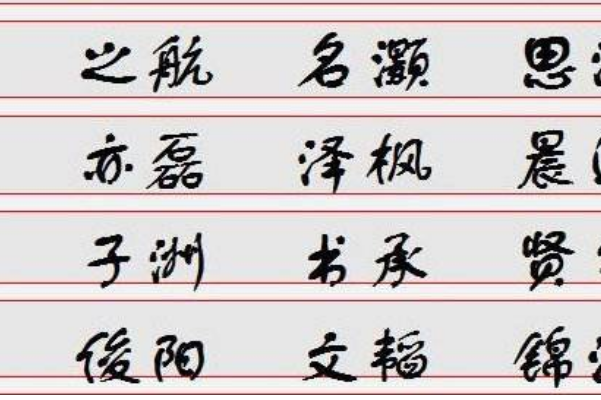 之航 名灏 思
亦磊 泽枫 晨
子洲 书承 贤
俊阳 文韬 锦